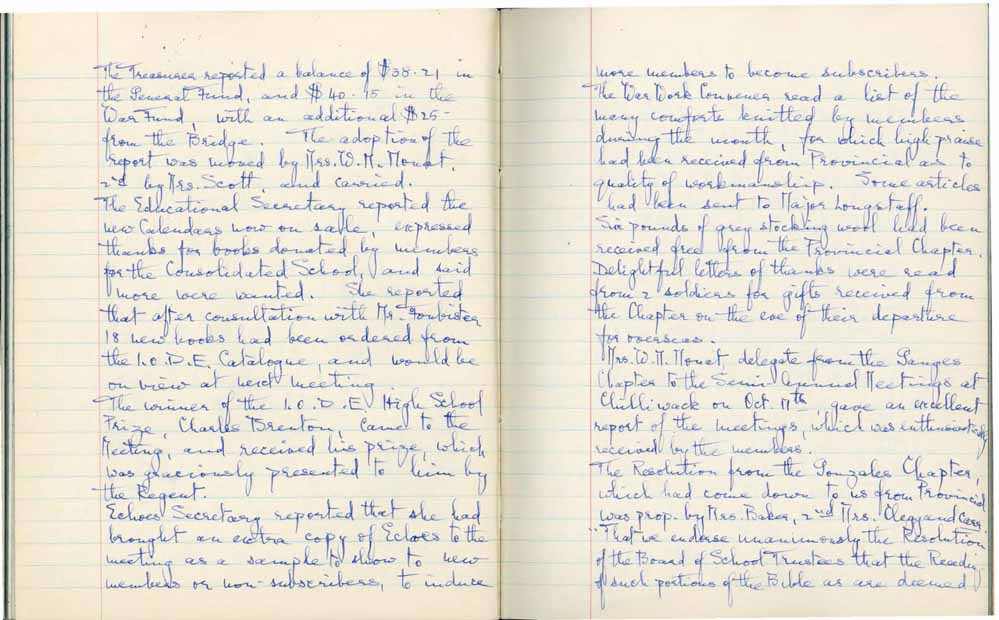 The Treasurer reported a balance of $38.21 in
the General Fund, and $40.15 in the
War Fund, with an additional $25-
from the Bridge. The adoption of the
report was moved by Mrs. W. M. Mouat,
2nd by Mrs. Scott, and carried.
The Educational Secretary reported the
new Calendars now on sale, expressed
thanks for books donated by members
for the Consolidated School, and said
more were wanted. She reported
that after consultation with Mr. Foubister
18 new books had been ordered from
the I.O.D.E. Catalogue, and would be
on view at next meeting.
The winner of the I.O.D.E. High School
Prize, Charles Brenton, came to the
Meeting, and received his prize, which
was graciously presented to him by
the Regent.
Echoes Secretary reported that she had
brought an extra copy of Echoes to the
meeting as a sample to show to new
members or non-subscribers, to induce
more members to become subscribers.
The War Work Convener read a list of the
many comforts knitted by members
during the month, for which high praise
had been received from Provincial as to
quality of workmanship. Some articles
had been sent to Major Longstaff.
Six pounds of grey stocking wool had been
received free from the Provincial Chapter.
Delightful letters of thanks were read
from 2 soldiers for gifts received from
the Chapter on the eve of their departure
for overseas.
Mrs. W. M. Mouat, delegate from the Ganges
Chapter to the Semi-Annual Meetings at
Chilliwack on Oct. 17th, gave an excellent
report of the meetings, which was enthusiastically
received by the members.
The Resolution from the Gonzales Chapter,
which had come down to us from Provincial
was prop. by Mrs. Baker, 2nd Mrs. Clegg and carr.
"That we endorse unanimously the Resolution
of the Board of School Trustees that the Reading
of such portions of the Bible as are deemed